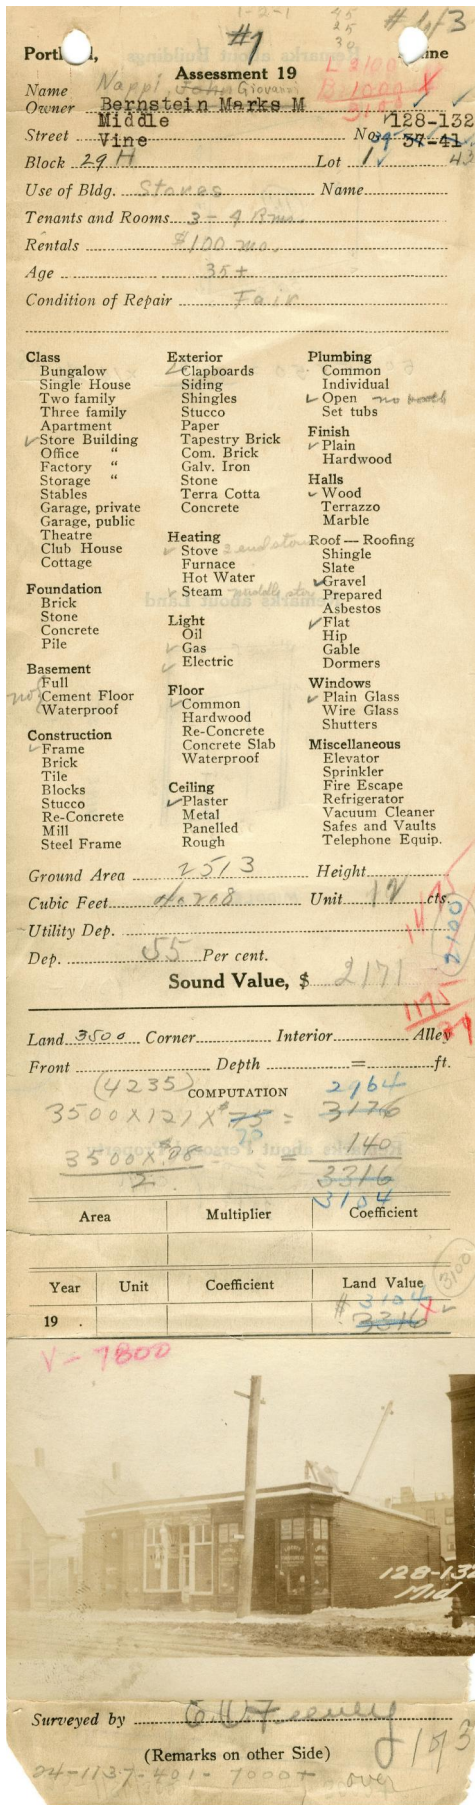 1-2-1 45
25
30
#1 # 1 of 3
Portland, Maine
Assessment 19
L 2100
B 1000 X
3100
Name Nappi, John Giovanni
Owner Bernstein Marks M
Middle 128-132
Street Vine No. 39 37-41
Block 29 H Lot 1 43
Use of Bldg. Stores Name
Tenants and Rooms 3 - 4 Rms.
Rentals $100 mo.
Age 35+
Condition of Repair Fair
Class
Bungalow
Single House
Two family
Three family
Apartment
✓ Store Building
Office "
Factory "
Storage "
Stables
Garage, private
Garage, public
Theatre
Club House
Cottage
Foundation
Brick
Stone
Concrete
Pile
Basement
Full
no Cement Floor
Waterproof
Construction
✓ Frame
Brick
Tile
Blocks
Stucco
Re-Concrete
Mill
Steel Frame
Exterior
✓ Clapboards
Siding
Shingles
Stucco
Paper
Tapestry Brick
Com. Brick
Galv. Iron
Stone
Terra Cotta
Concrete
Heating
✓ Stove 2 end stores
Furnace
Hot Water
✓ Steam middle store
Light
Oil
✓ Gas
✓ Electric
Floor
✓ Common
Hardwood
Re-Concrete
Concrete Slab
Waterproof
Ceiling
✓ Plaster
Metal
Panelled
Rough
Plumbing
Common
Individual
✓ Open no bath
Set tubs
Finish
✓ Plain
Hardwood
Halls
✓ Wood
Terrazzo
Marble
Roof — Roofing
Shingle
Slate
✓ Gravel
Prepared
Asbestos
✓ Flat
Hip
Gable
Dormers
Windows
✓ Plain Glass
Wire Glass
Shutters
Miscellaneous
Elevator
Sprinkler
Fire Escape
Refrigerator
Vacuum Cleaner
Safes and Vaults
Telephone Equip.
Ground Area 2513 Height
Cubic Feet 40208 Unit 12 cts.
Utility Dep.
Dep. 55 Per cent.
Sound Value, $ 2171
1475
1175
Land 3500 Corner Interior Alley
Front Depth = ft.
(4235) COMPUTATION 2964
3500 X 121 X $.75 = 3176
70
3500 X $.08 = 140
2 3316
3104
Area Multiplier Coefficient
Year Unit Coefficient Land Value
3100
19 $ 3104 X
3316
V - 7800
128-132
Mid
Surveyed by
(Remarks on other Side)
1 of 3
24-1137-401- 7000+
over